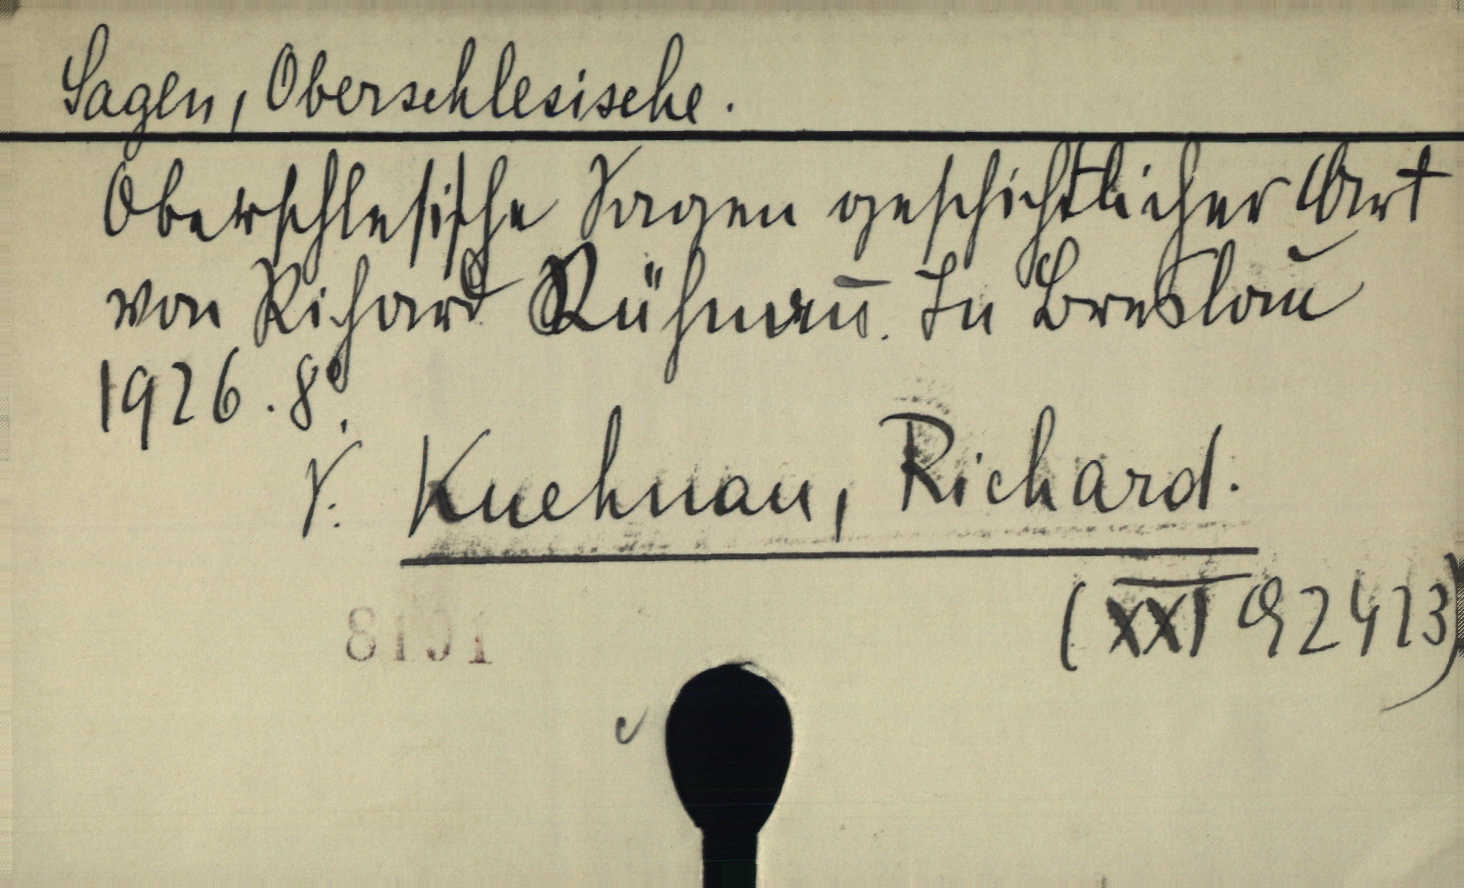 Sagen, Oberschlesische.
Oberschlesische Sagen geschichtlicher Art
von Richard Kühnau. In Breslau
1926. 8°.
V. Kuehnau, Richard.
(XXI 92423)
8101